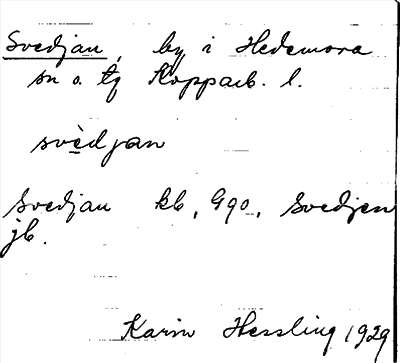 Svedjan, by i Hedemora
sn o. tg Kopparb. l.
svèdjan
Svedjan kb, Ggo., Svedjen
jb.
Karin Hessling 1929